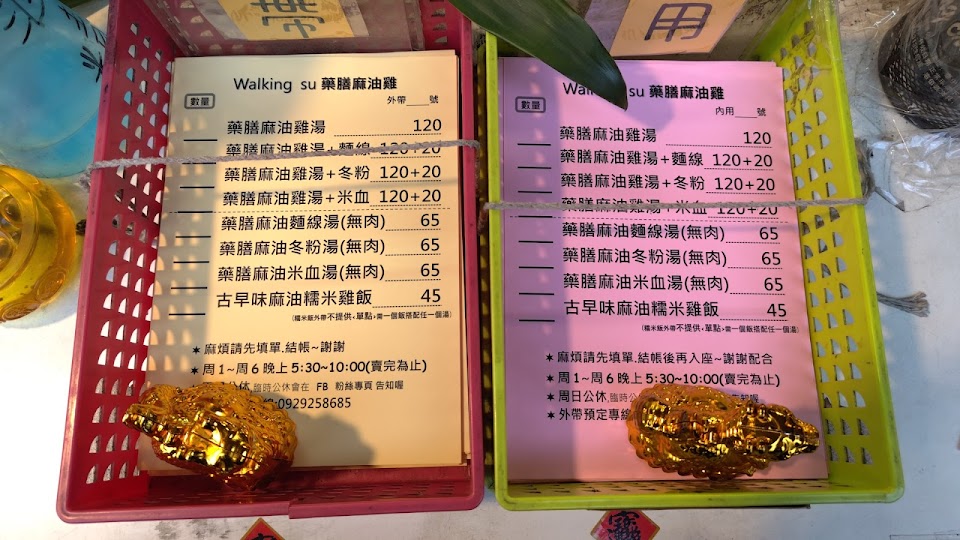 帶
Walking su 藥膳麻油雞
外帶____號
數量
藥膳麻油雞湯 120
藥膳麻油雞湯+麵線 120+20
藥膳麻油雞湯+冬粉 120+20
藥膳麻油雞湯+米血 120+20
藥膳麻油麵線湯(無肉) 65
藥膳麻油冬粉湯(無肉) 65
藥膳麻油米血湯(無肉) 65
古早味麻油糯米雞飯 45
(糯米飯外帶不提供,單點,需一個飯搭配任一個湯)
✶ 麻煩請先填單.結帳~謝謝
✶ 周1~周6 晚上5:30~10:00(賣完為止)
公休,臨時公休會在 FB 粉絲專頁 告知喔
:0929258685
用
Walking su 藥膳麻油雞
內用____號
數量
藥膳麻油雞湯 120
藥膳麻油雞湯+麵線 120+20
藥膳麻油雞湯+冬粉 120+20
藥膳麻油雞湯+米血 120+20
藥膳麻油麵線湯(無肉) 65
藥膳麻油冬粉湯(無肉) 65
藥膳麻油米血湯(無肉) 65
古早味麻油糯米雞飯 45
(糯米飯外帶不提供,單點,需一個飯搭配任一個湯)
✶ 麻煩請先填單.結帳後再入座~謝謝配合
✶ 周1~周6 晚上5:30~10:00(賣完為止)
✶ 周日公休,臨時公 告知喔
✶ 外帶預定專線